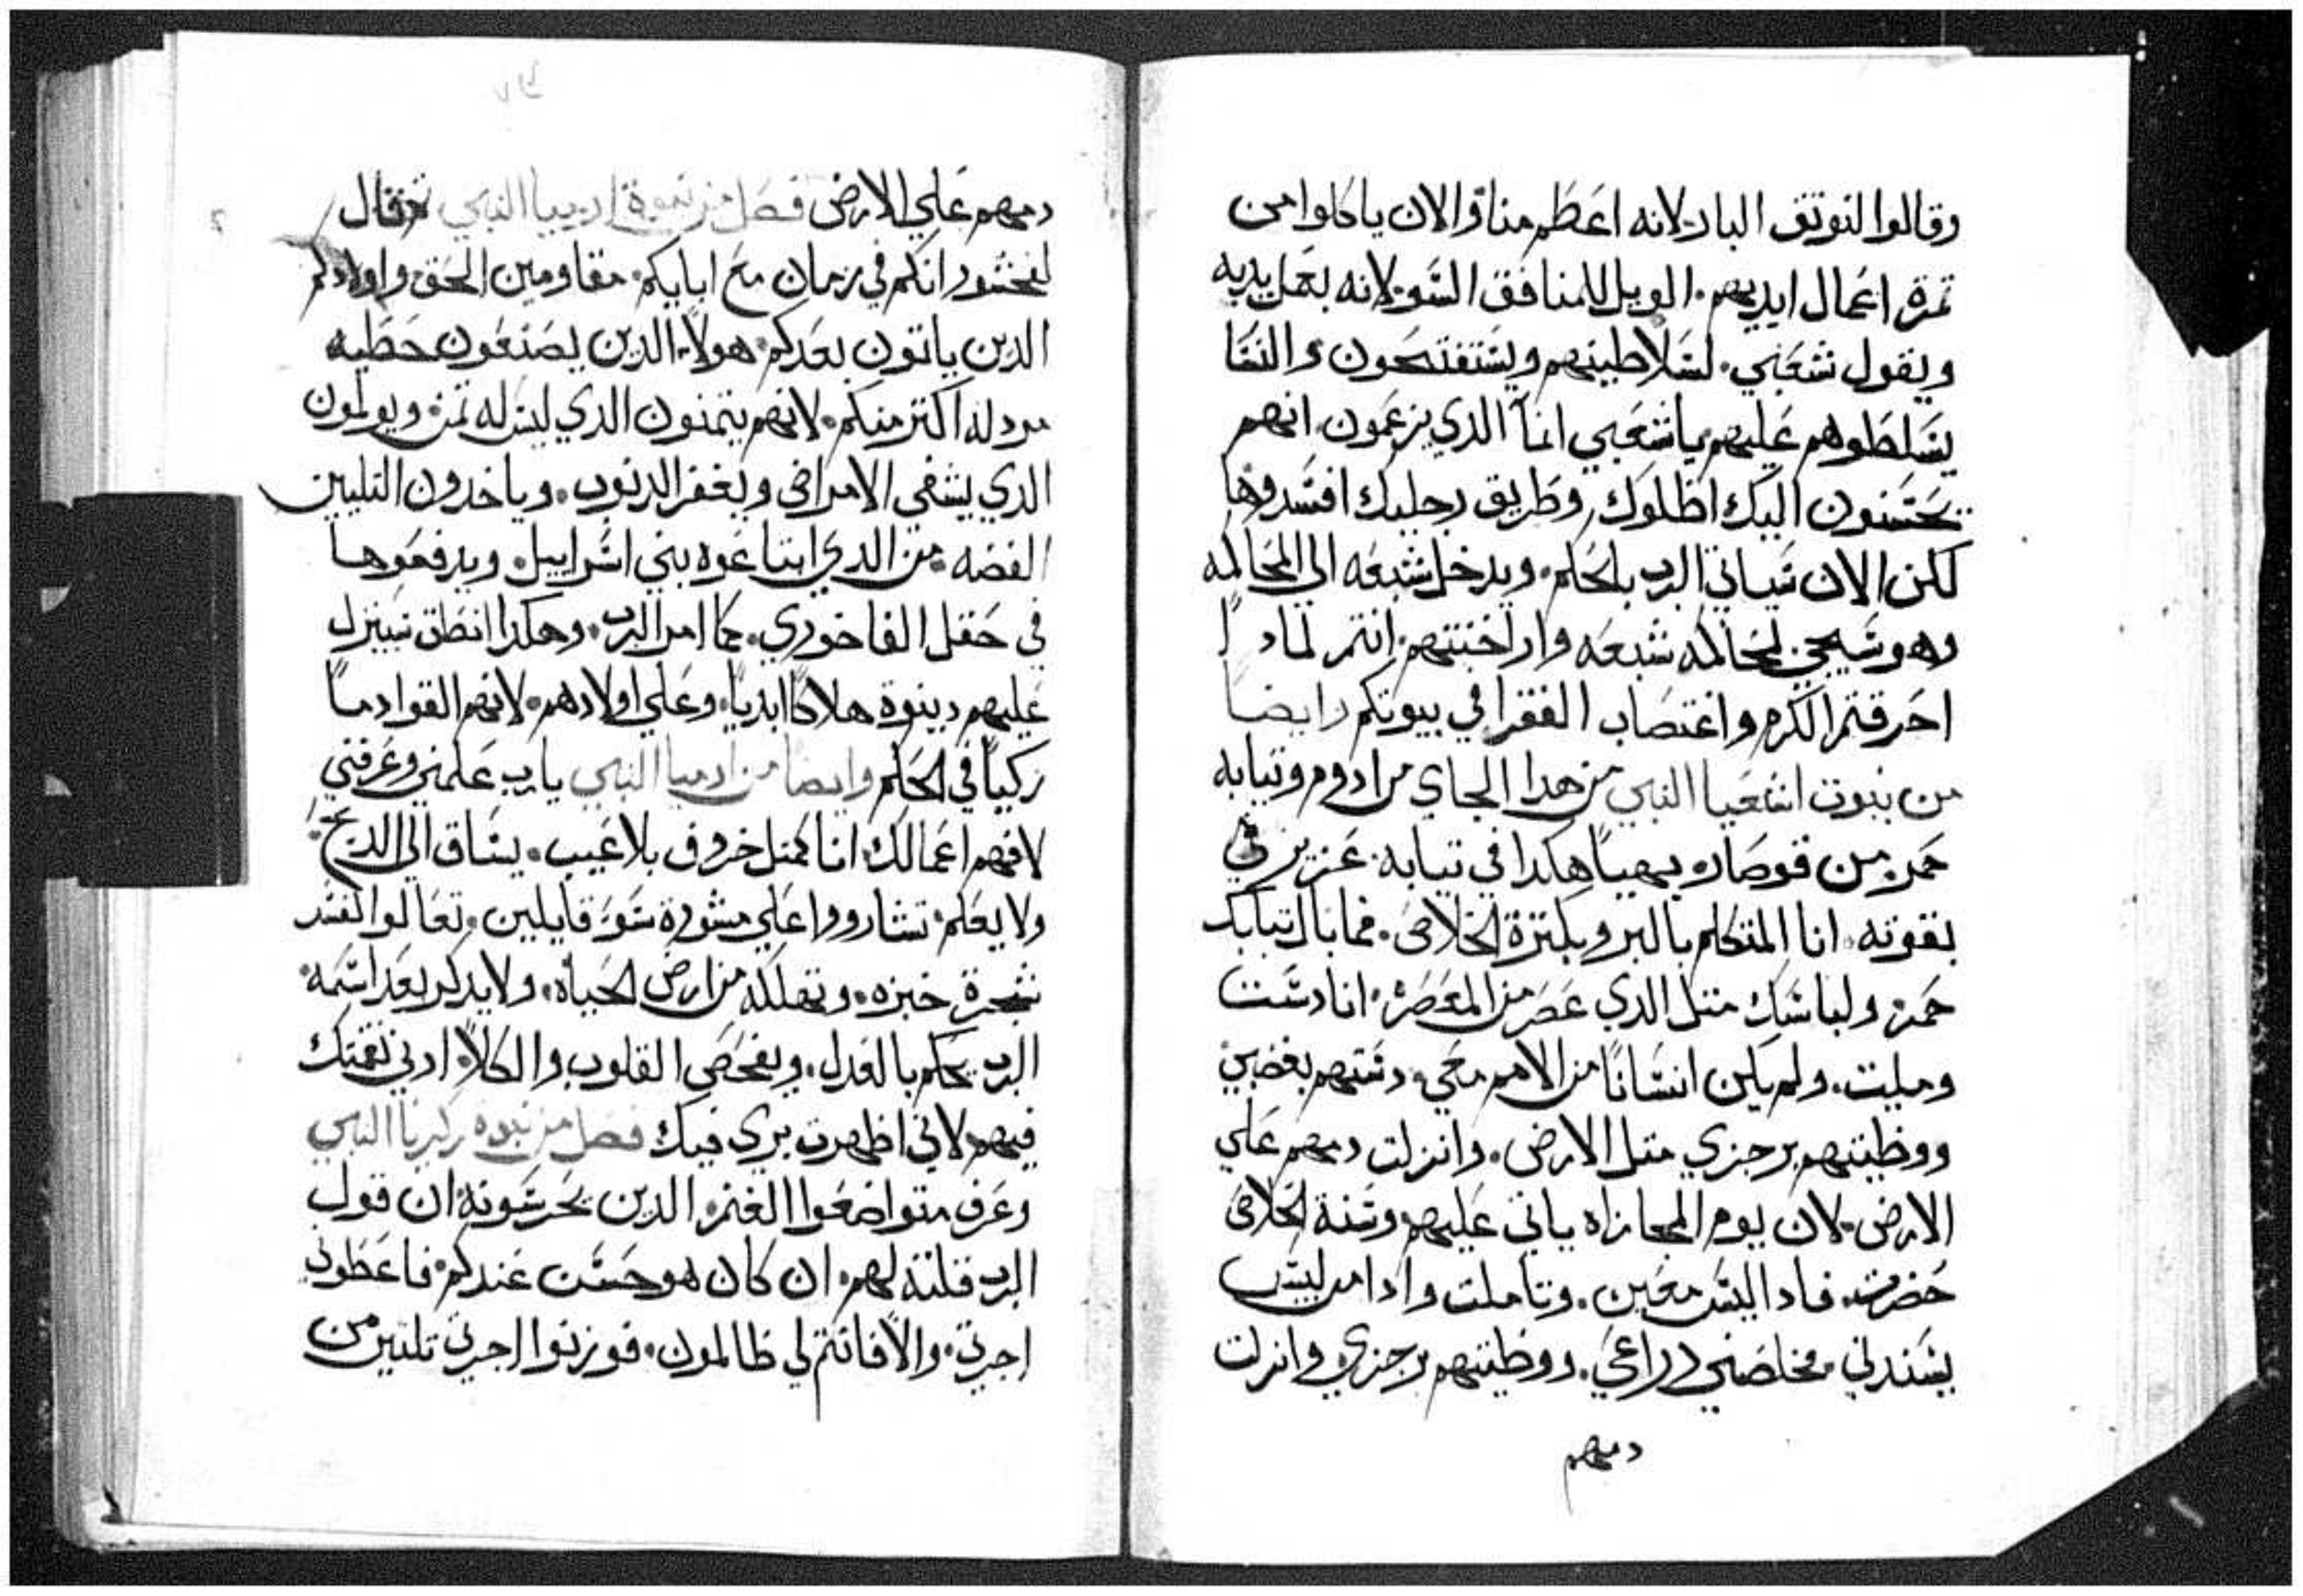 وقالوا لنوتق البار لانه اعظم منا والان ياكلوا من
تمرة اعمال ايديهم. الويل للمنافق السو لانه بعمل يديه
ويقول شعبي. لسلاطينهم ويستفتحون والنسا
يسلطوهم عليهم ياشعبي انما الدي يزعمون انهم
يحسنون اليك اظلوك وطريق رجليك افسدوها
لكن الان سياتي الرب بالحكم. ويدخل شبعه الي المحاكمه
وهو سيجي لمحاكمه شبعه واراخنتهم. انتم لماد
احرقتم الكرم واغتصاب الفقرا في بيوتكم وايضا
من نبوت اشعيا النبي من هدا الجاي من ادوم وتيابه
حمر من قوصاره بهيا هكدا في تيابه. عزيز في
بقوته. انا المتكلم بالبر وبكترة الخلاص. فما بال تيابك
حمر ولباسك متل الدي عصر من المعصره. انا دست
ومليت. ولم يكن انسانا من الامم معي. دستهم بغضبي
ووطيتهم برجزي متل الارض. وانزلت دمهم علي
الارض لان يوم المجازاه ياتي عليهم وسنة الخلاص
حضرت. فاد اليس معين. وتاملت وادا من ليس
يسندني. فخلصني دراعي. ووطيتهم برجزي وانزلت
دمهم
دمهم علي الارض فصل من نبوة ارميا النبي تم قال
لفخشور انكم في زمان مع ابايكم. مقاومين الحق واولادكم
الدين ياتون بعدكم. هولاء الدين يصنعون خطيه
مردله اكتر منكم. لانهم يتمنون الدي ليس له تمن ويولمون
الدي يشفي الامراض ويغفر الدنوب. وياخدون التلتين
الفضه. تمن الدي ابتاعوه بني اسراييل. ويدفعوها
في حقل الفاخوري. كما امر الرب. وهكدا انطق سينزل
عليهم دينونة هلاكا ابديا. وعلي اولادهم. لانهم القوا دما
زكيا في الحكم وايضا من ارميا النبي يارب علمني وعرفني
لافهم اعمالك انا كمتل خروف بلا عيب. يساق الي الدبح.
ولا يعلم. تشاوروا علي مشورة سوء قايلين. تعالوا لنفسد
شجرة خبزه. ونهلكه من ارض الحياه. ولا يدكر بعد اسمه.
الرب يحكم بالعدل. ويفحص القلوب والكلا. ارني نقمتك
فيهم لاني اظهرت بري فيك فصل من نبوه زكريا النبي
وعرف متواضعوا الغنم. الدين يحرسونه ان قول
الرب قلته لهم. ان كان هو حسن عندكم. فاعطوني
اجرتي. والا فانتم لي ظالمون. فوزنوا اجرتي تلتين من